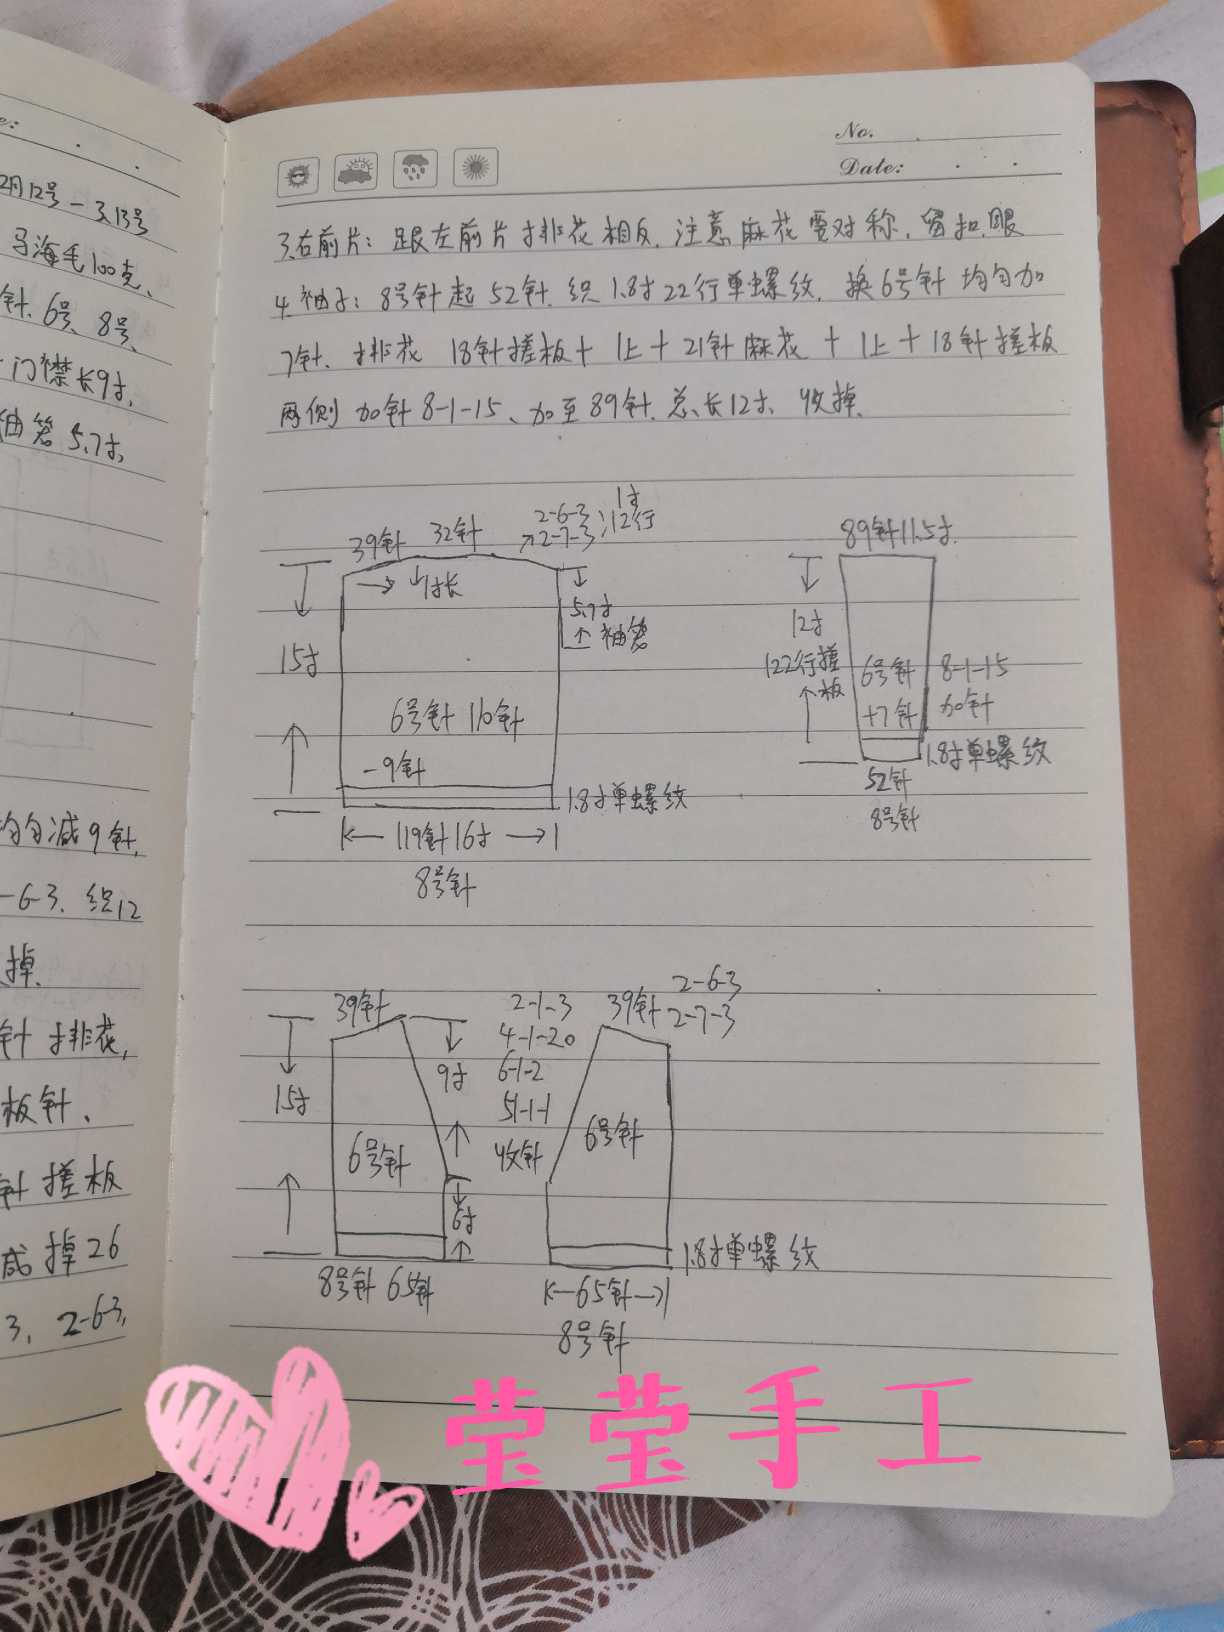 2月12号-3.13号
马海毛100克、
针.6号、8号、
门襟长9寸,
袖笼5.7寸,
均匀减9针,
-6-3.织12
掉.
针排花,
板针、
针搓板
减掉26
3, 2-6-3,
No.
Date:
3.右前片：跟左前片排花相反.注意麻花要对称.留扣眼
4.袖子：8号针起52针.织1.8寸22行单螺纹.换6号针均匀加
7针.排花18针搓板+1上+21针麻花+1上+18针搓板
两侧加针8-1-15、加至89针.总长12寸.收掉.
39针 32针 2-6-3 2-7-3 1寸 12行
1寸长
15寸
5.7寸
袖笼
6号针 110针
-9针
1.8寸单螺纹
119针16寸
8号针
89针11.5寸.
12寸
122行搓板
6号针
+7针
8-1-15
加针
1.8寸单螺纹
52针
8号针
39针
15寸
9寸
6号针
6寸
8号针 65针
2-1-3
4-1-20
6-1-2
51-1-1
收针
39针 2-6-3
2-7-3
6号针
1.8寸单螺纹
65针
8号针
莹莹手工